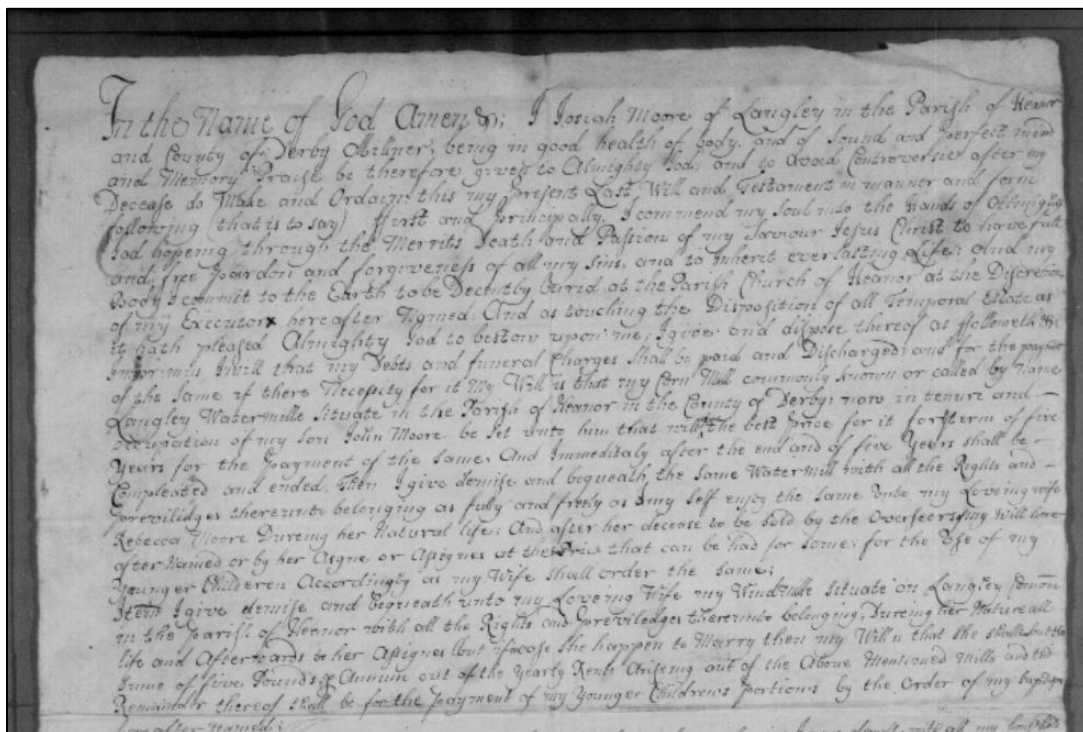 In the Name of God Amen &c; I Josiah Moore of Langley in the Parish of Heanor
and County of Derby Milner, being in good health of body, and of Sound and perfect mind
and Memory Praise be therefore given to Almighty God; and to Avoid Controversie after my
Decease do Make and Ordain this my present Last Will and Testament in manner and form
following (that is to say) ffirst and principally, I commend my Soul into the hands of Almighty
God hopeing through the Merrits Death and Passion of my Saviour Jesus Christ to have full
and free pardon and forgiveness of all my Sins, and to Inherit everlasting Life; and my
Body I commit to the Earth to be Decently burid at the Parish Church of Heanor at the Discretion
of my Executor hereafter Named; And as touching the Disposition of all Temporal Estate as
it hath pleased Almighty God to bestow upon me, I give and dispose thereof as ffolloweth &c
Imprimis I will that my Debts and funeral Charges Shall be paid and Discharged; and for the paymt
of the Same if there Necessity for it My Will is that my Corn Mill commonly known or called by Name
Langley Watermille Situate in the Parish of Heanor in the County of Derby; now in tenure and
occupation of my Son John Moore be Set unto him that will the best price for it for term of five
Years for the payment of the Same, And Immeditaly after the end and of five Years shall be
Compleated and ended, Then I give demise and bequeath the Same Water Mill with all the Rights and
previlidges thereunto belonging as fully and freely as I my Self enjoy the Same Unto my Loveing wife
Rebecca Moore During her Natural life; And after her decease to be Sold by the Overseers of my Will here
after Named or by her Asigne or Asignes at the Price that can be had for Same; for the Use of my
Younger Childeren Accordingly as my Wife shall order the Same;
Item I give demise and bequeath unto my Loveing Wife my Windmille Situate on Langley Comon
in the Parish of Heanor with all the Rights and previledges thereunto belonging, Dureing her Natureall
life and Afterwards to her Asignes but if case she happen to Marry then my Will is that she shall but
Sume of five Pounds Annum out of the Yearly Rents Ariseing out of the Above Mentioned Mills and the
Remainder thereof shall be for the payment of my Younger Children's portions by the Order of my
after Named;